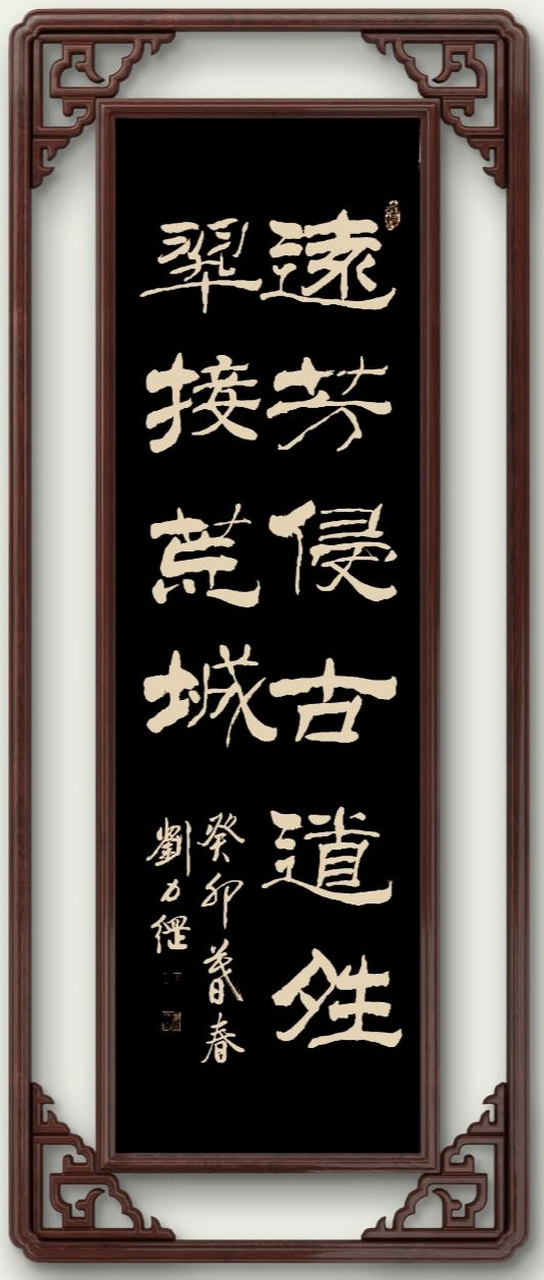 遠芳侵古道夝
翠接荒城
癸卯暮春
劉力